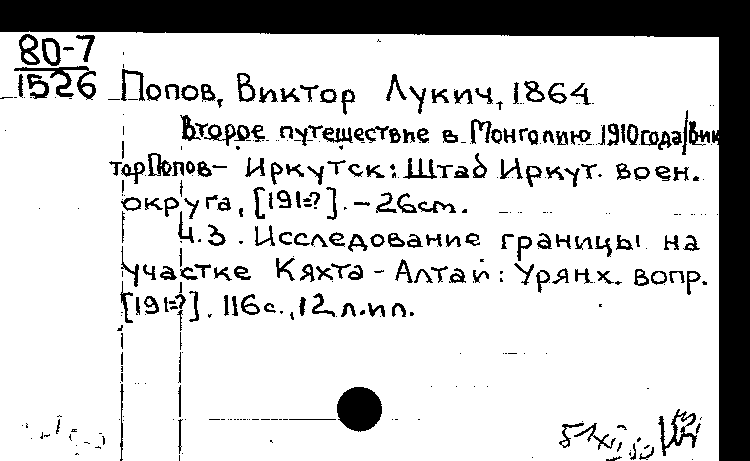 80-7
1526
Попов, Виктор Лукич, 1864
Второе путешествие в Монголию 1910 года/Вик
тор Попов - Иркутск: Штаб Иркут. воен.
округа, [191-?]. - 26 cm.
Ч.3. Исследование границы на
участке Кяхта - Алтай: Урянх. вопр.
[191-?]. 116 с., 12 л. ил.